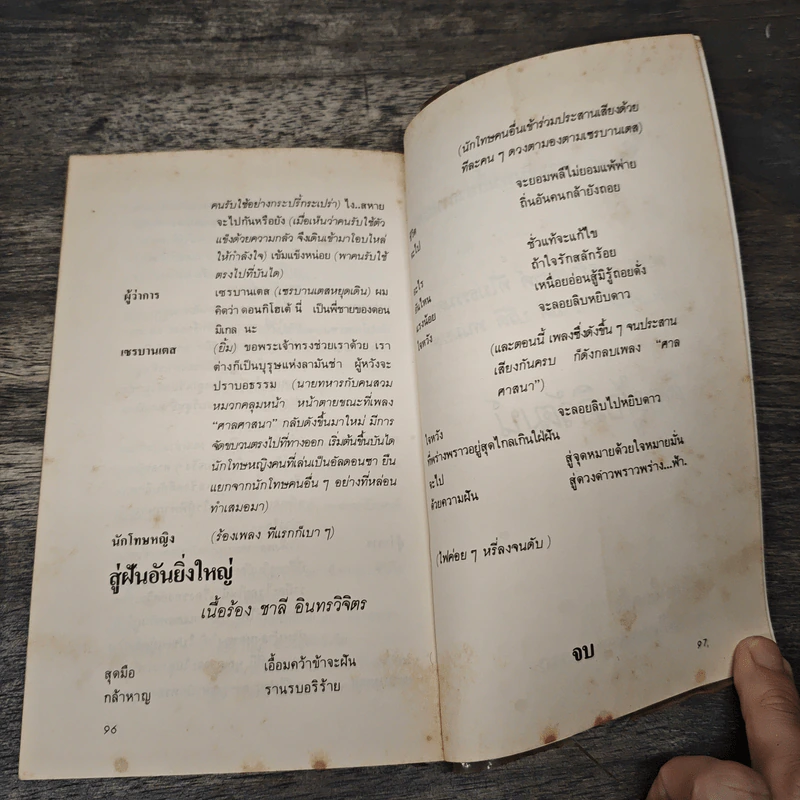 คนรับใช้อย่างกระปรี้กระเปร่า) ไง..สหาย
จะไปกันหรือยัง (เมื่อเห็นว่าคนรับใช้ตัว
แข็งด้วยความกลัว จึงเดินเข้ามาโอบไหล่
ให้กำลังใจ) เข้มแข็งหน่อย (พาคนรับใช้
ตรงไปที่บันได)
ผู้ว่าการ เซรบานเตส (เซรบานเตสหยุดเดิน) ผม
คิดว่า ดอนกิโฮเต้ นี่ เป็นพี่ชายของดอน
มิเกล นะ
เซรบานเตส (ยิ้ม) ขอพระเจ้าทรงช่วยเราด้วย เรา
ต่างก็เป็นบุรุษแห่งลามันช่า ผู้หวังจะ
ปราบอธรรม (นายทหารกับคนสวม
หมวกคลุมหน้า หน้าตายขณะที่เพลง
“ศาลศาสนา” กลับดังขึ้นมาใหม่ มีการ
จัดขบวนตรงไปที่ทางออก เริ่มต้นขึ้นบันได
นักโทษหญิงคนที่เล่นเป็นอัลดอนซา ยืน
แยกจากนักโทษคนอื่น ๆ อย่างที่หล่อน
ทำเสมอมา)
นักโทษหญิง (ร้องเพลง ทีแรกก็เบา ๆ)
สู่ฝันอันยิ่งใหญ่
เนื้อร้อง ชาลี อินทรวิจิตร
สุดมือ เอื้อมคว้าข้าจะฝัน
กล้าหาญ รานรบอริร้าย
96
(นักโทษคนอื่นเข้าร่วมประสานเสียงด้วย
ทีละคน ๆ ดวงตามองตามเซรบานเตส)
จะยอมพลีไม่ยอมแพ้พ่าย
ถิ่นอันคนกล้ายังถอย
จะไป ชั่วแท้จะแก้ไข
ถ้าใจรักสลักร้อย
เหนื่อยอ่อนสู้มิรู้ถอยดั่ง
ใจหวัง จะลอยลิบหยิบดาว
(และตอนนี้ เพลงซึ่งดังขึ้น ๆ จนประสาน
เสียงกันครบ ก็ดังกลบเพลง “ศาล
ศาสนา”)
ใจหวัง จะลอยลิบไปหยิบดาว
ที่พร่างพราวอยู่สุดไกลเกินใฝ่ฝัน
จะไป สู่จุดหมายด้วยใจหมายมั่น
ด้วยความฝัน สู่ดวงดาวพราวพร่าง...ฟ้า.
(ไฟค่อย ๆ หรี่ลงจนดับ)
จบ
97